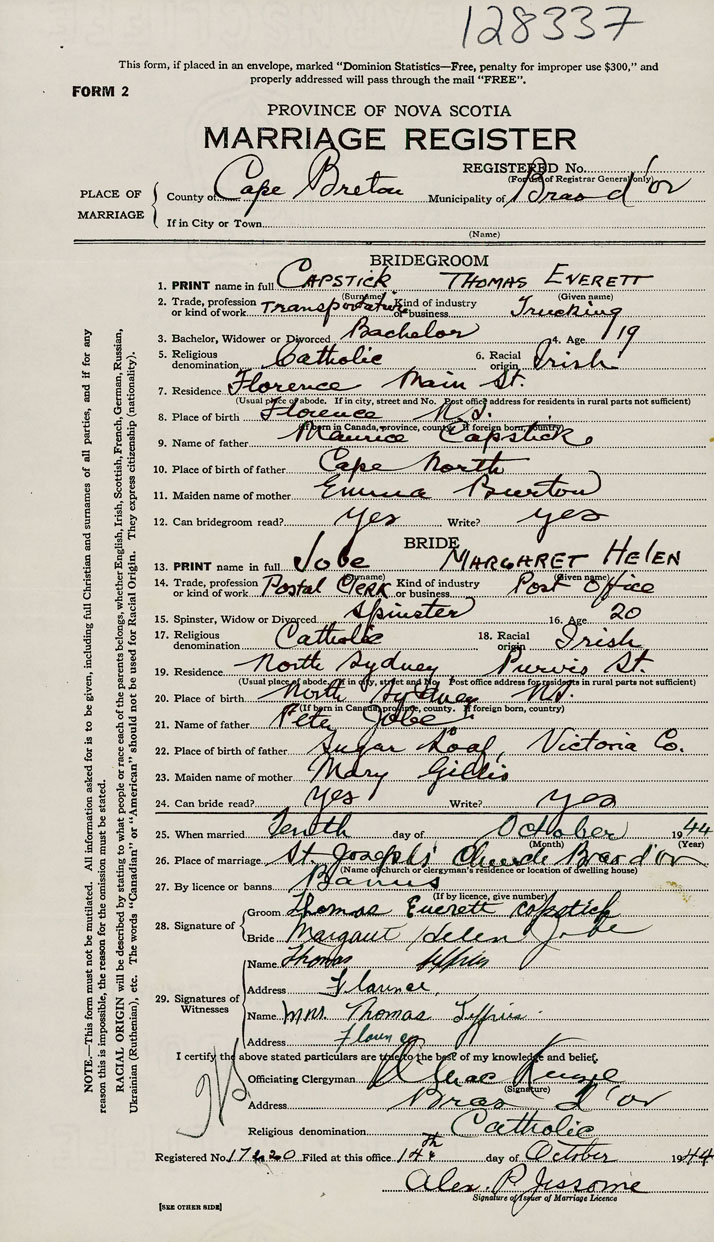 128337
This form, if placed in an envelope, marked "Dominion Statistics—Free, penalty for improper use $300," and
properly addressed will pass through the mail "FREE".
FORM 2
PROVINCE OF NOVA SCOTIA
MARRIAGE REGISTER
REGISTERED No.
(For use of Registrar General only)
PLACE OF MARRIAGE
County of Cape Breton Municipality of Bras d'or
If in City or Town
(Name)
BRIDEGROOM
1. PRINT name in full CAPSTICK THOMAS EVERETT
(Surname) (Given name)
2. Trade, profession or kind of work Transportation Kind of industry or business Trucking
3. Bachelor, Widower or Divorced Bachelor 4. Age 19
5. Religious denomination Catholic 6. Racial origin Irish
7. Residence Florence Main St.
(Usual place of abode. If in city, street and No. Post office address for residents in rural parts not sufficient)
8. Place of birth Florence N.S.
(If born in Canada, province, county. If foreign born, country)
9. Name of father Maurice Capstick
10. Place of birth of father Cape North
11. Maiden name of mother Emma Burton
12. Can bridegroom read? yes Write? yes
BRIDE
13. PRINT name in full Jobe MARGARET HELEN
(Surname) (Given name)
14. Trade, profession or kind of work Postal Clerk Kind of industry or business Post Office
15. Spinster, Widow or Divorced Spinster 16. Age 20
17. Religious denomination Catholic 18. Racial origin Irish
19. Residence North Sydney Purvis St.
(Usual place of abode. If in city, street and No. Post office address for residents in rural parts not sufficient)
20. Place of birth North Sydney N.S.
(If born in Canada, province, county. If foreign born, country)
21. Name of father Peter Jobe
22. Place of birth of father Sugar Loaf, Victoria Co.
23. Maiden name of mother Mary Gillis
24. Can bride read? yes Write? yes
25. When married Tenth day of October 1944
(Month) (Year)
26. Place of marriage St. Joseph's Church Bras d'or
(Name of church or clergyman's residence or location of dwelling house)
27. By licence or banns Banns
(If by licence, give number)
28. Signature of
Groom Thomas Everett Capstick
Bride Margaret Helen Jobe
29. Signatures of Witnesses
Name Thomas
Address Florence
Name Mrs. Thomas
Address Florence
I certify the above stated particulars are true to the best of my knowledge and belief.
Officiating Clergyman MacKenzie
(Signature)
Address Bras d'or
Religious denomination Catholic
Registered No. Filed at this office 14th day of October 1944
Alex. P. Jessome
Signature of Issuer of Marriage Licence
[SEE OTHER SIDE]
NOTE.—This form must not be mutilated. All information asked for is to be given, including full Christian and surnames of all parties, and if for any
reason this is impossible, the reason for the omission must be stated.
RACIAL ORIGIN will be described by stating to what people or race each of the parents belongs, whether English, Irish, Scottish, French, German, Russian,
Ukrainian (Ruthenian), etc. The words "Canadian" or "American" should not be used for Racial Origin. They express citizenship (nationality).